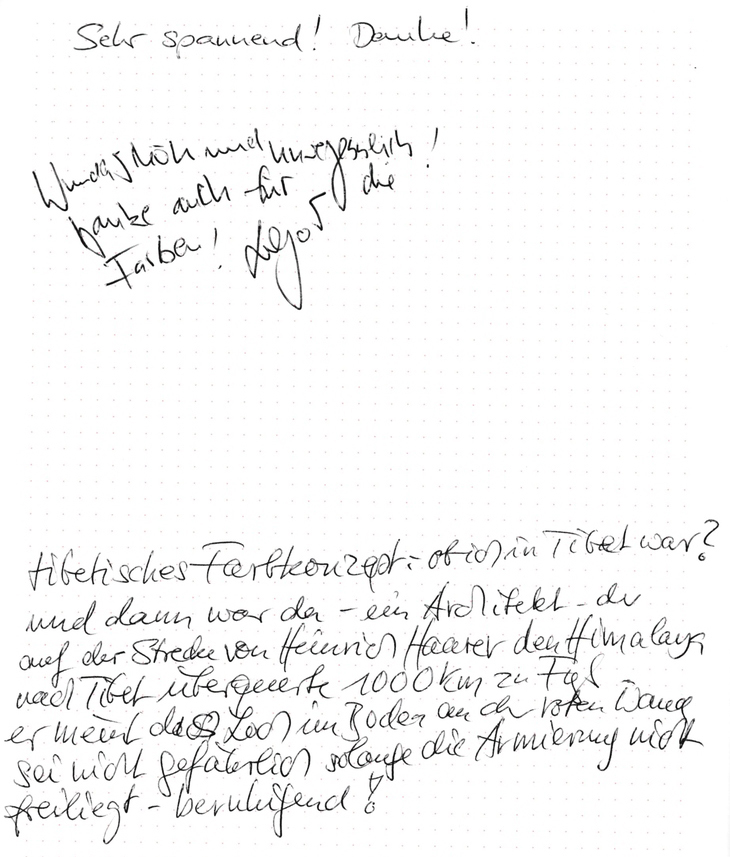 Sehr spannend! Danke!
Wunderschön und unvergesslich!
Danke auch für die
Farben!
tibetisches Farbkonzept: ob ich in Tibet war?
und dann war da - ein Architekt - der
auf der Strecke von Heinrich Haarer den Himalaya
nach Tibet überquerte 1000 km zu Fuß
er meint das Loch im Boden an der roten Wand
sei nicht gefährlich solange die Armierung nicht
freiliegt - beruhigend!